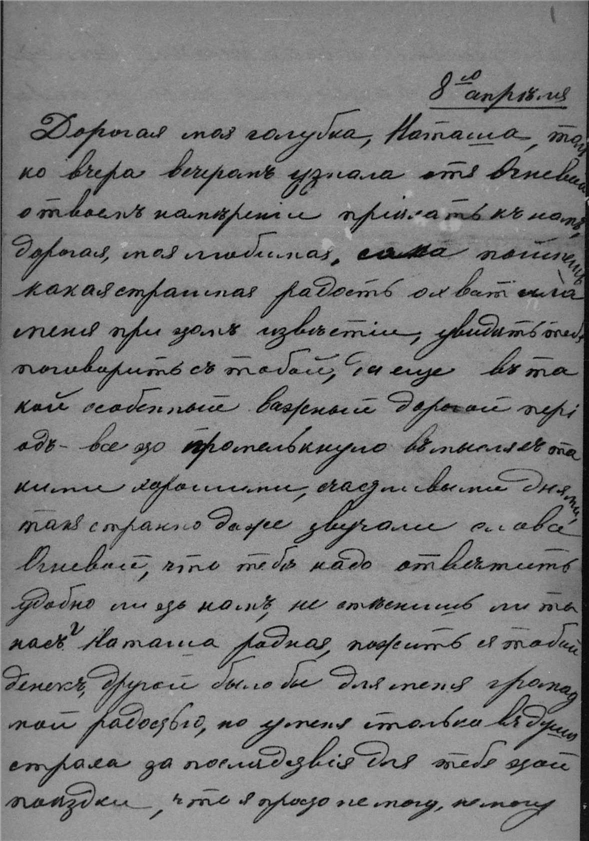 1
8го апрѣля
Дорогая моя голубка, Наташа, толь
ко вчера вечерамъ узнала отъ Огневой
о твоемъ намѣреніи пріѣхать къ намъ,
дорогая, моя любимая, сама поймешь
какая страшная радость охватила
меня при этомъ извѣстіи, увидить тебя
поговорить съ тобой, да еще въ та
кой особенный важный дорогой пері
одъ - все это промелькнуло въ мысляхъ та
кими хорошими, счастливыми днями,
такъ странно даже звучали слова
Огневой, что тебѣ надо отвѣтить
удобно ли это намъ, не стѣснишь ли ты
насъ? Наташа родная, пожить съ тобой
денекъ, другой было бы для меня громад
ной радостью, но у меня столько въ душѣ
страха за послѣдствія для тебя этой
поѣздки, что я просто не могу, не могу